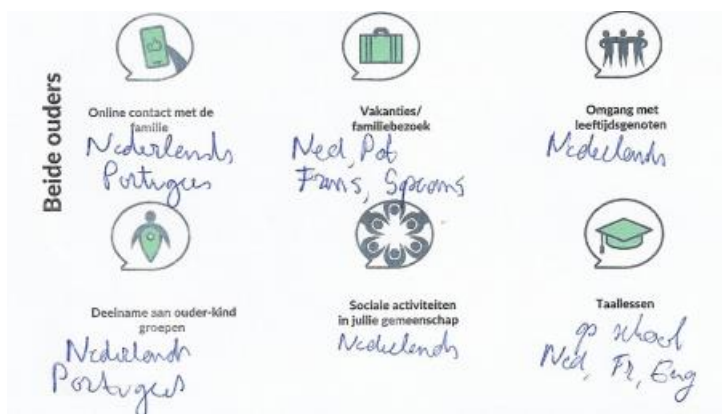 Beide ouders
Online contact met de
familie
Nederlands
Portugees
Vakanties/
familiebezoek
Ned, Pot
Frans, Spaans
Omgang met
leeftijdsgenoten
Nederlands
Deelname aan ouder-kind
groepen
Nederlands
Portugees
Sociale activiteiten
in jullie gemeenschap
Nederlands
Taallessen
op school
Ned, Fr, Eng